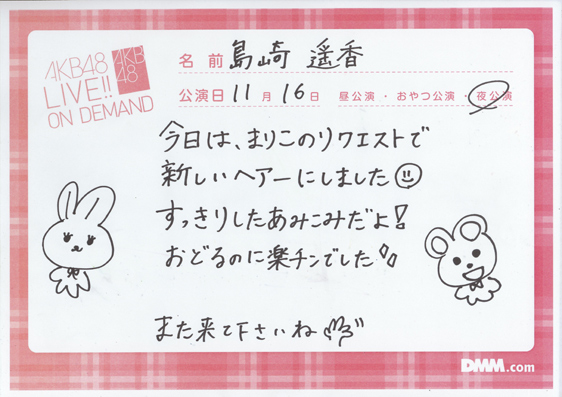 AKB48
LIVE!!
ON DEMAND
AKB
48
名前 島崎 遥香
公演日 11月16日 昼公演・おやつ公演・夜公演
今日は、まりこのリクエストで
新しいヘアーにしました
すっきりしたあみこみだよ!
おどるのに楽チンでした
また来て下さいね
DMM.com